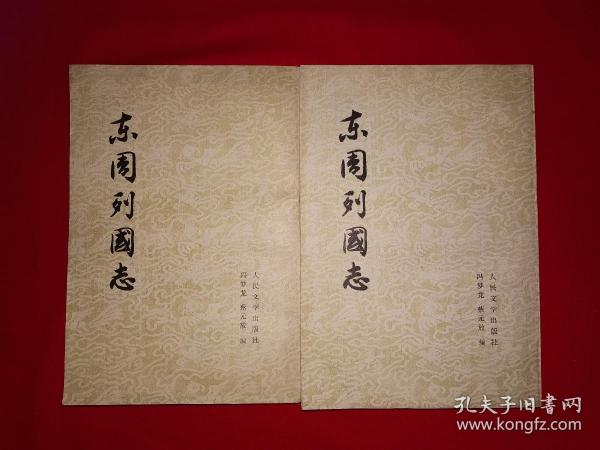 东周列國志
冯梦龙 蔡元放 编
人民文学出版社
东周列國志
冯梦龙 蔡元放 编
人民文学出版社
孔夫子旧書网
www.kongfz.com